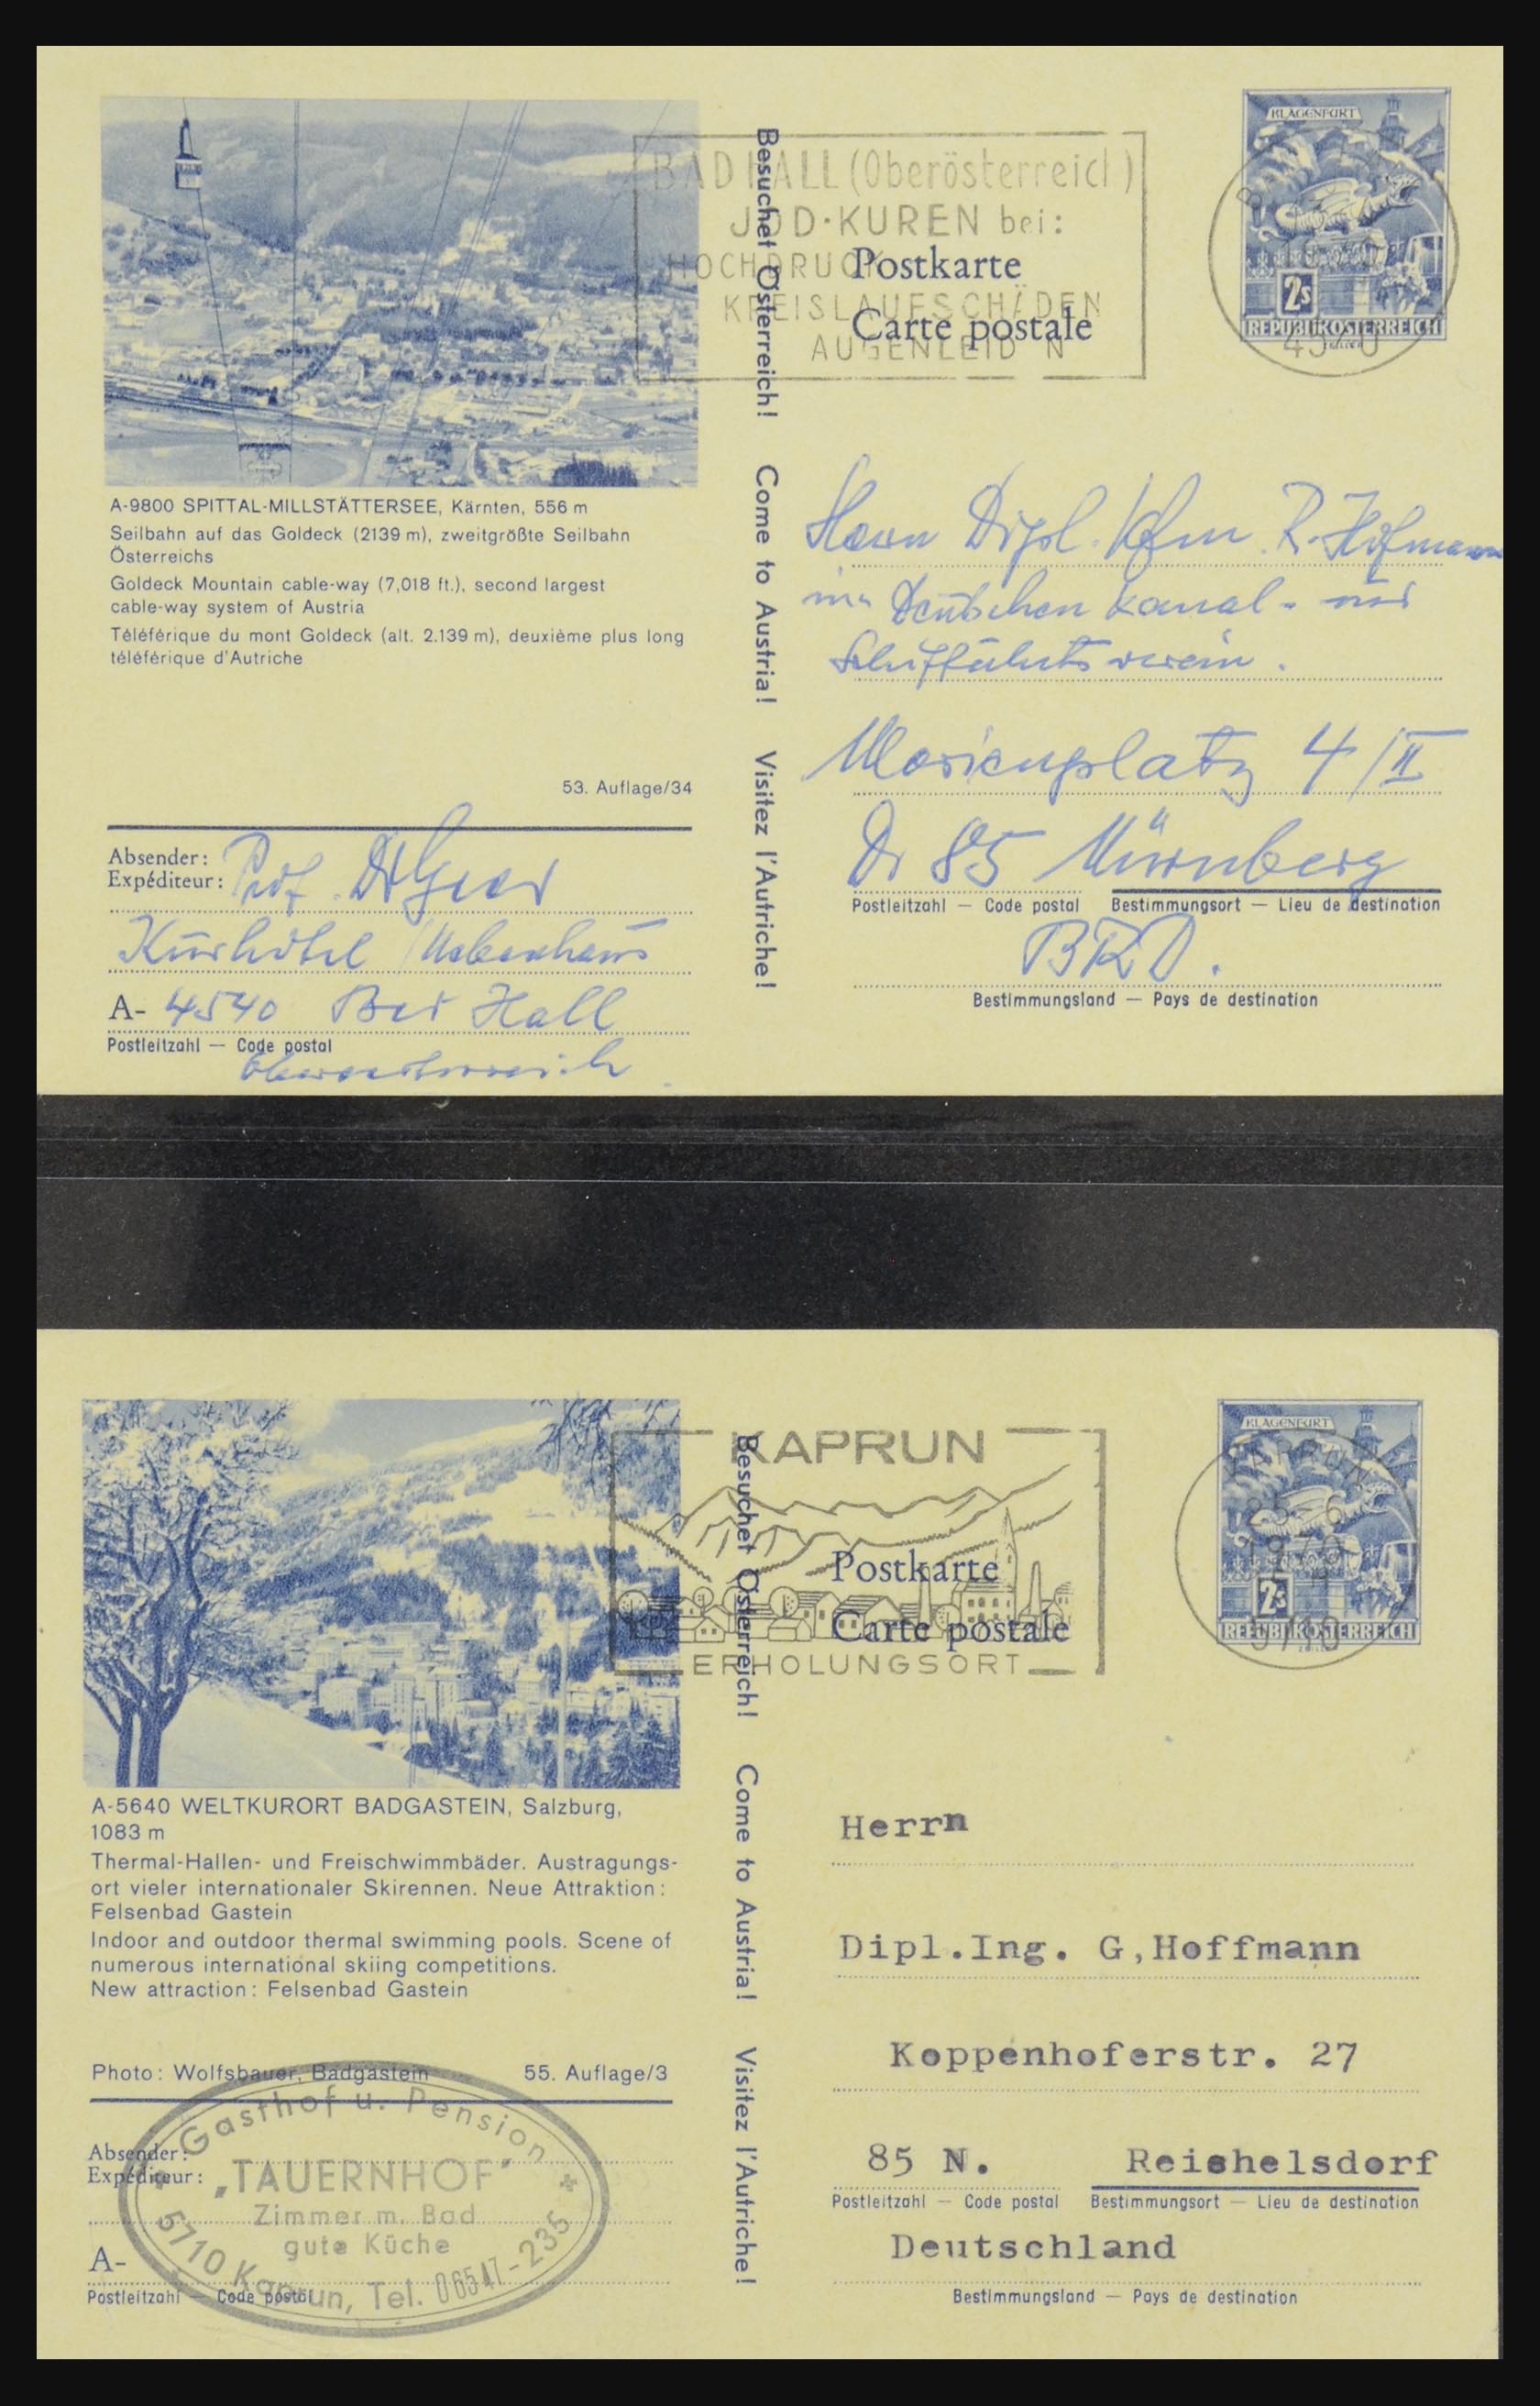 BAD HALL (Oberösterreich)
JOD-KUREN bei:
HOCHDRUCK
KREISLAUFSCHÄDEN
AUGENLEIDEN
Postkarte
Carte postale
KLAGENFURT
2s
REPUBLIK ÖSTERREICH
Besuchet Österreich! Come to Austria! Visitez l'Autriche!
A-9800 SPITTAL-MILLSTÄTTERSEE, Kärnten, 556 m
Seilbahn auf das Goldeck (2139 m), zweitgrößte Seilbahn
Österreichs
Goldeck Mountain cable-way (7,018 ft.), second largest
cable-way system of Austria
Téléférique du mont Goldeck (alt. 2.139 m), deuxième plus long
téléférique d'Autriche
53. Auflage/34
Absender:
Expéditeur: Prof.
Kurhotel
A- 4540 Bad Hall
Postleitzahl — Code postal
Oberösterreich
Herrn Dipl. Kfm R. Hofmann
im Deutschen Kanal- und
Schiffahrtsverein.
Marienplatz 4/II
D 85 Nürnberg
Postleitzahl — Code postal Bestimmungsort — Lieu de destination
BRD.
Bestimmungsland — Pays de destination
KAPRUN
ERHOLUNGSORT
Postkarte
Carte postale
KLAGENFURT
2s
REPUBLIK ÖSTERREICH
KAPRUN
5710
Besuchet Österreich! Come to Austria! Visitez l'Autriche!
A-5640 WELTKURORT BADGASTEIN, Salzburg,
1083 m
Thermal-Hallen- und Freischwimmbäder. Austragungs-
ort vieler internationaler Skirennen. Neue Attraktion:
Felsenbad Gastein
Indoor and outdoor thermal swimming pools. Scene of
numerous international skiing competitions.
New attraction: Felsenbad Gastein
Photo: Wolfsbauer, Badgastein 55. Auflage/3
Absender:
Expéditeur:
A-
Postleitzahl — Code postal
Gasthof u. Pension
„TAUERNHOF"
Zimmer m. Bad
gute Küche
5710 Kaprun, Tel. 06547-235
Herrn
Dipl.Ing. G,Hoffmann
Koppenhoferstr. 27
85 N. Reichelsdorf
Postleitzahl — Code postal Bestimmungsort — Lieu de destination
Deutschland
Bestimmungsland — Pays de destination